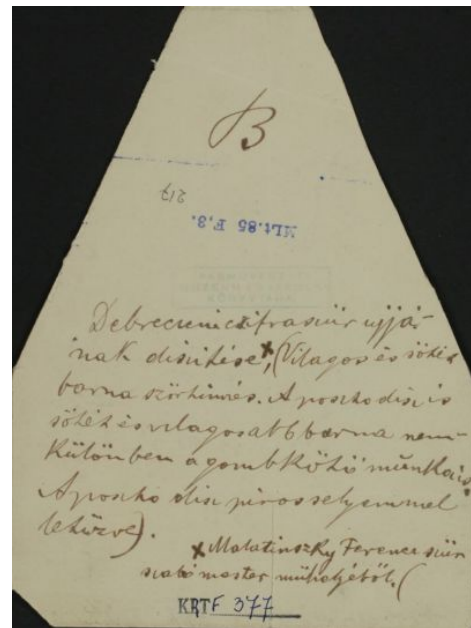 B
217
MLt.85 F,3.
IPARMŰVÉSZETI
KÖNYVTÁRA
Debreceni czifraszűr ujjá-
nak diszitése, x (Világos és sötét
barna szőrhimzés. A poszto disz is
sötét és világosabb barna nem-
különben a gombkötő munka is.
A poszto disz piros selyemmel
letűzve).
x Malatinszky Ferencz szűr
szabó mester műhelyéből. (
KRTF 377